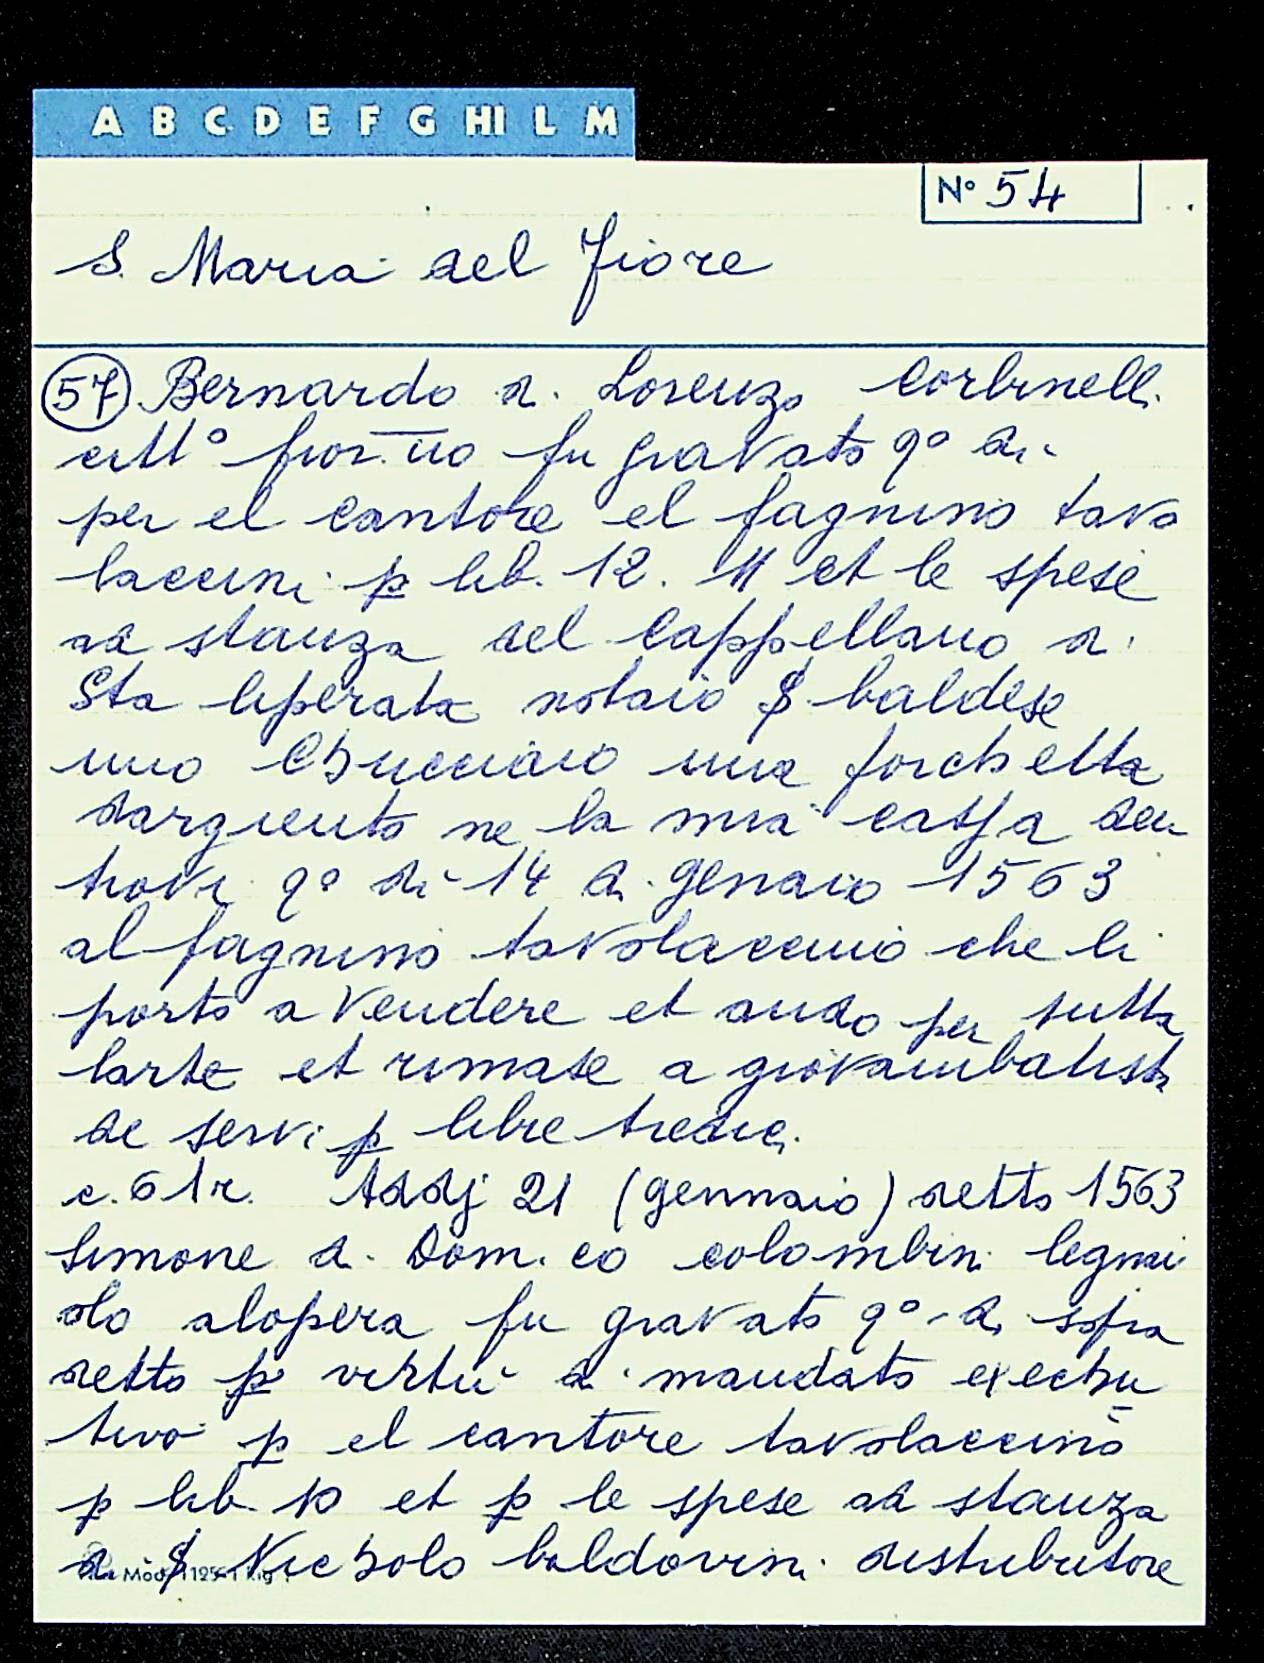 A B C D E F G HI L M
N° 54
S. Maria del Fiore
57 Bernardo d. Lorenzo Corbinelli
citt° fior.no fu gravato q° di
per el cantore el fagnino tavo
laccini p lib. 12. 11 et le spese
ad stanza del Cappellano d.
Sta liperata notaio S baldese
uno Chucciaio una forchetta
dargiento ne la mia cassa den
trovi q° di 14 d. genaio 1563
al fagnino tavolaccino che li
porto a Vendere et ando per tutta
larte et rimase a giovambatista
de servi p libre tredici.
c. 61r. Addj 21 (gennaio) detto 1563
Simone d. Dom.co colombini legnai
olo alopera fu gravato q° di sopra
detto p virtu d. mandato exechu
tivo p el cantore tavolaccino
p lib. 10 et p le spese ad stanza
d. S Nicholo baldovini distributore